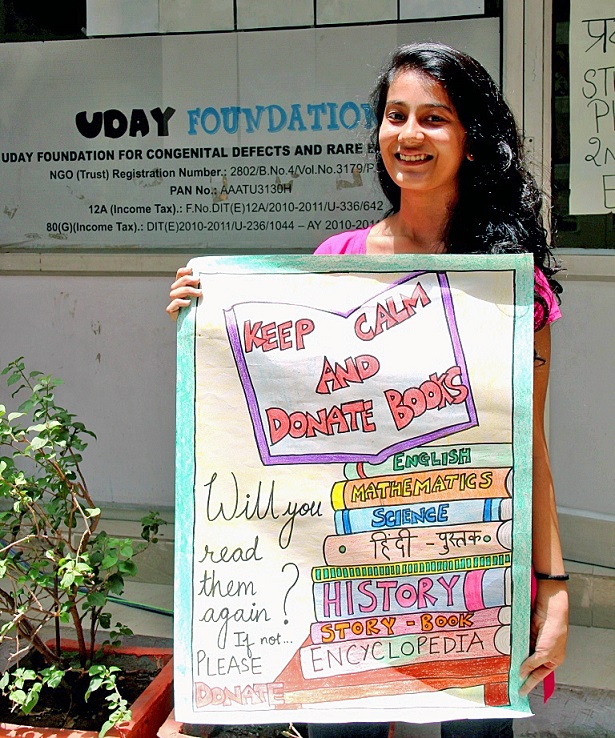 UDAY FOUNDATION
UDAY FOUNDATION FOR CONGENITAL DEFECTS AND RARE
NGO (Trust) Registration Number.: 2802/B.No.4/Vol.No.3179/P.
PAN No.: AAATU3130H
12A (Income Tax).: F.No.DIT(E)12A/2010-2011/U-336/642
80(G)(Income Tax).: DIT(E)2010-2011/U-236/1044 – AY 2010-201
KEEP CALM
AND
DONATE BOOKS
ENGLISH
MATHEMATICS
SCIENCE
हिंदी - पुस्तक
HISTORY
STORY - BOOK
ENCYCLOPEDIA
Will you
read
them
again?
If not...
PLEASE
DONATE